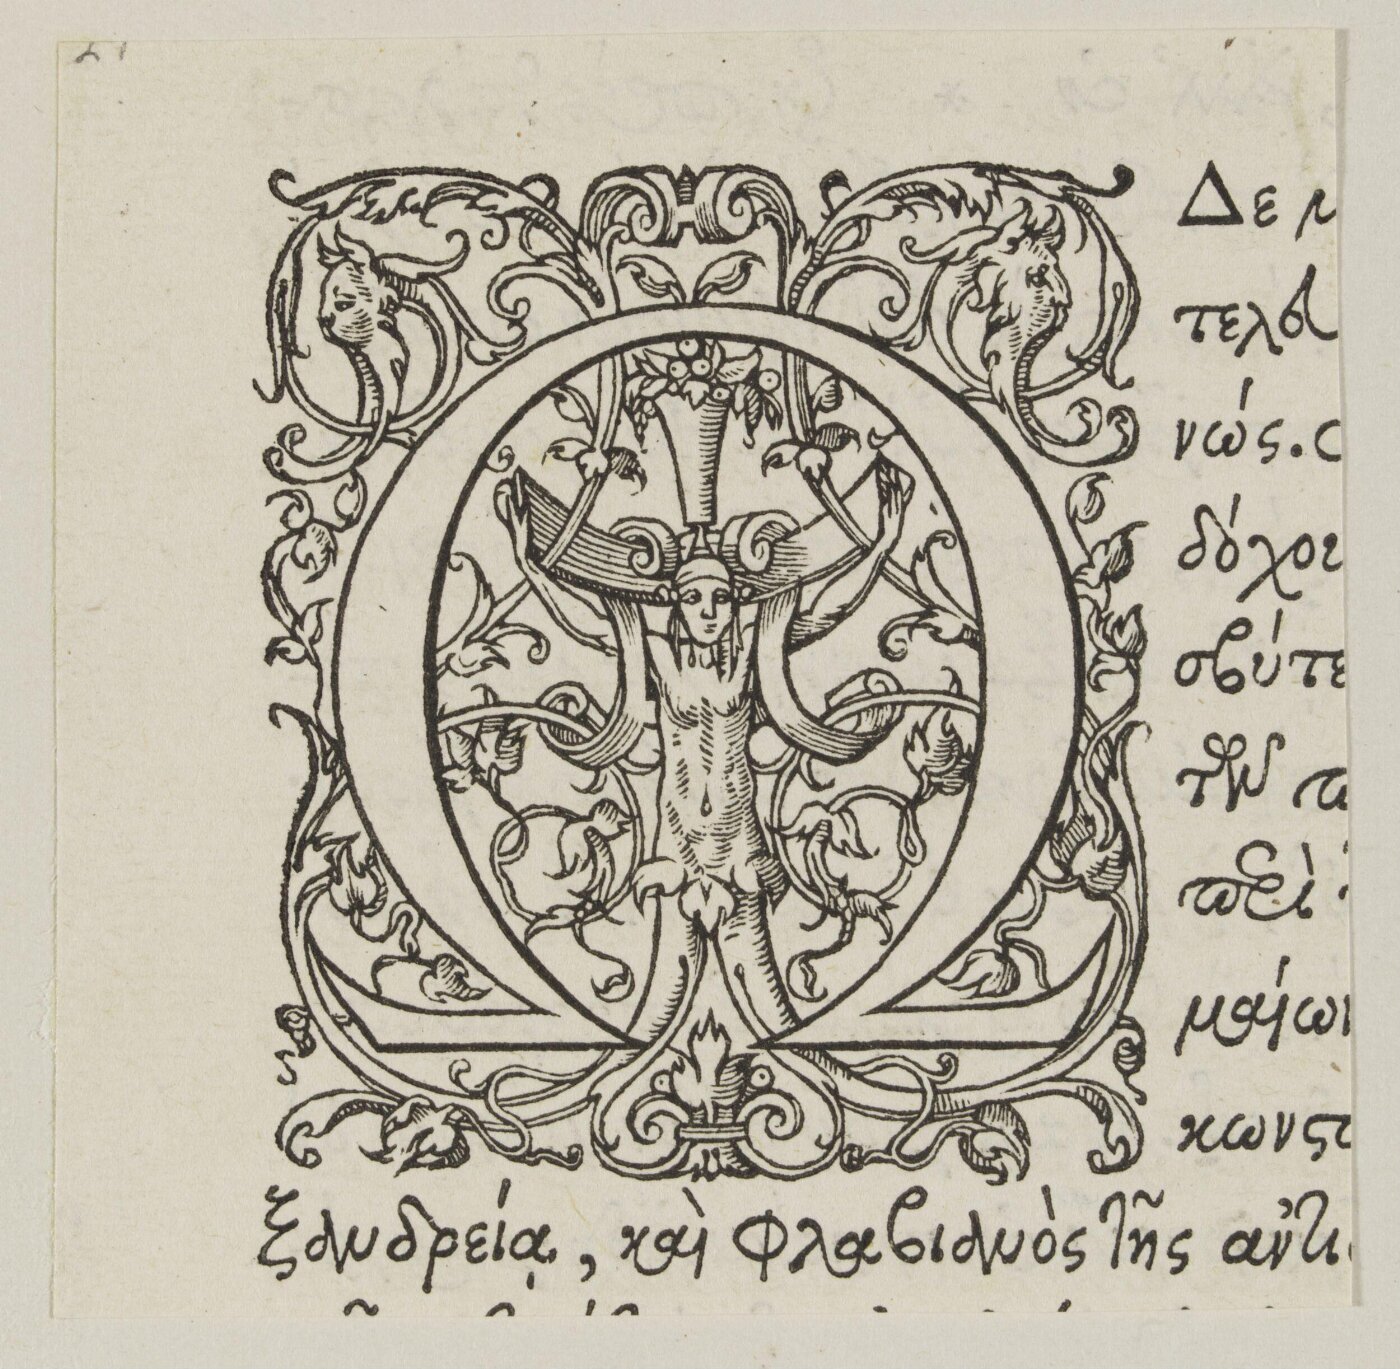 ΩΔε
νώς.
δόχοι
σβύτε
τῶν π
περὶ
μαίων
κωνστ
ξανδρεία, καὶ Φλαβιανὸς τῆς ἀντι